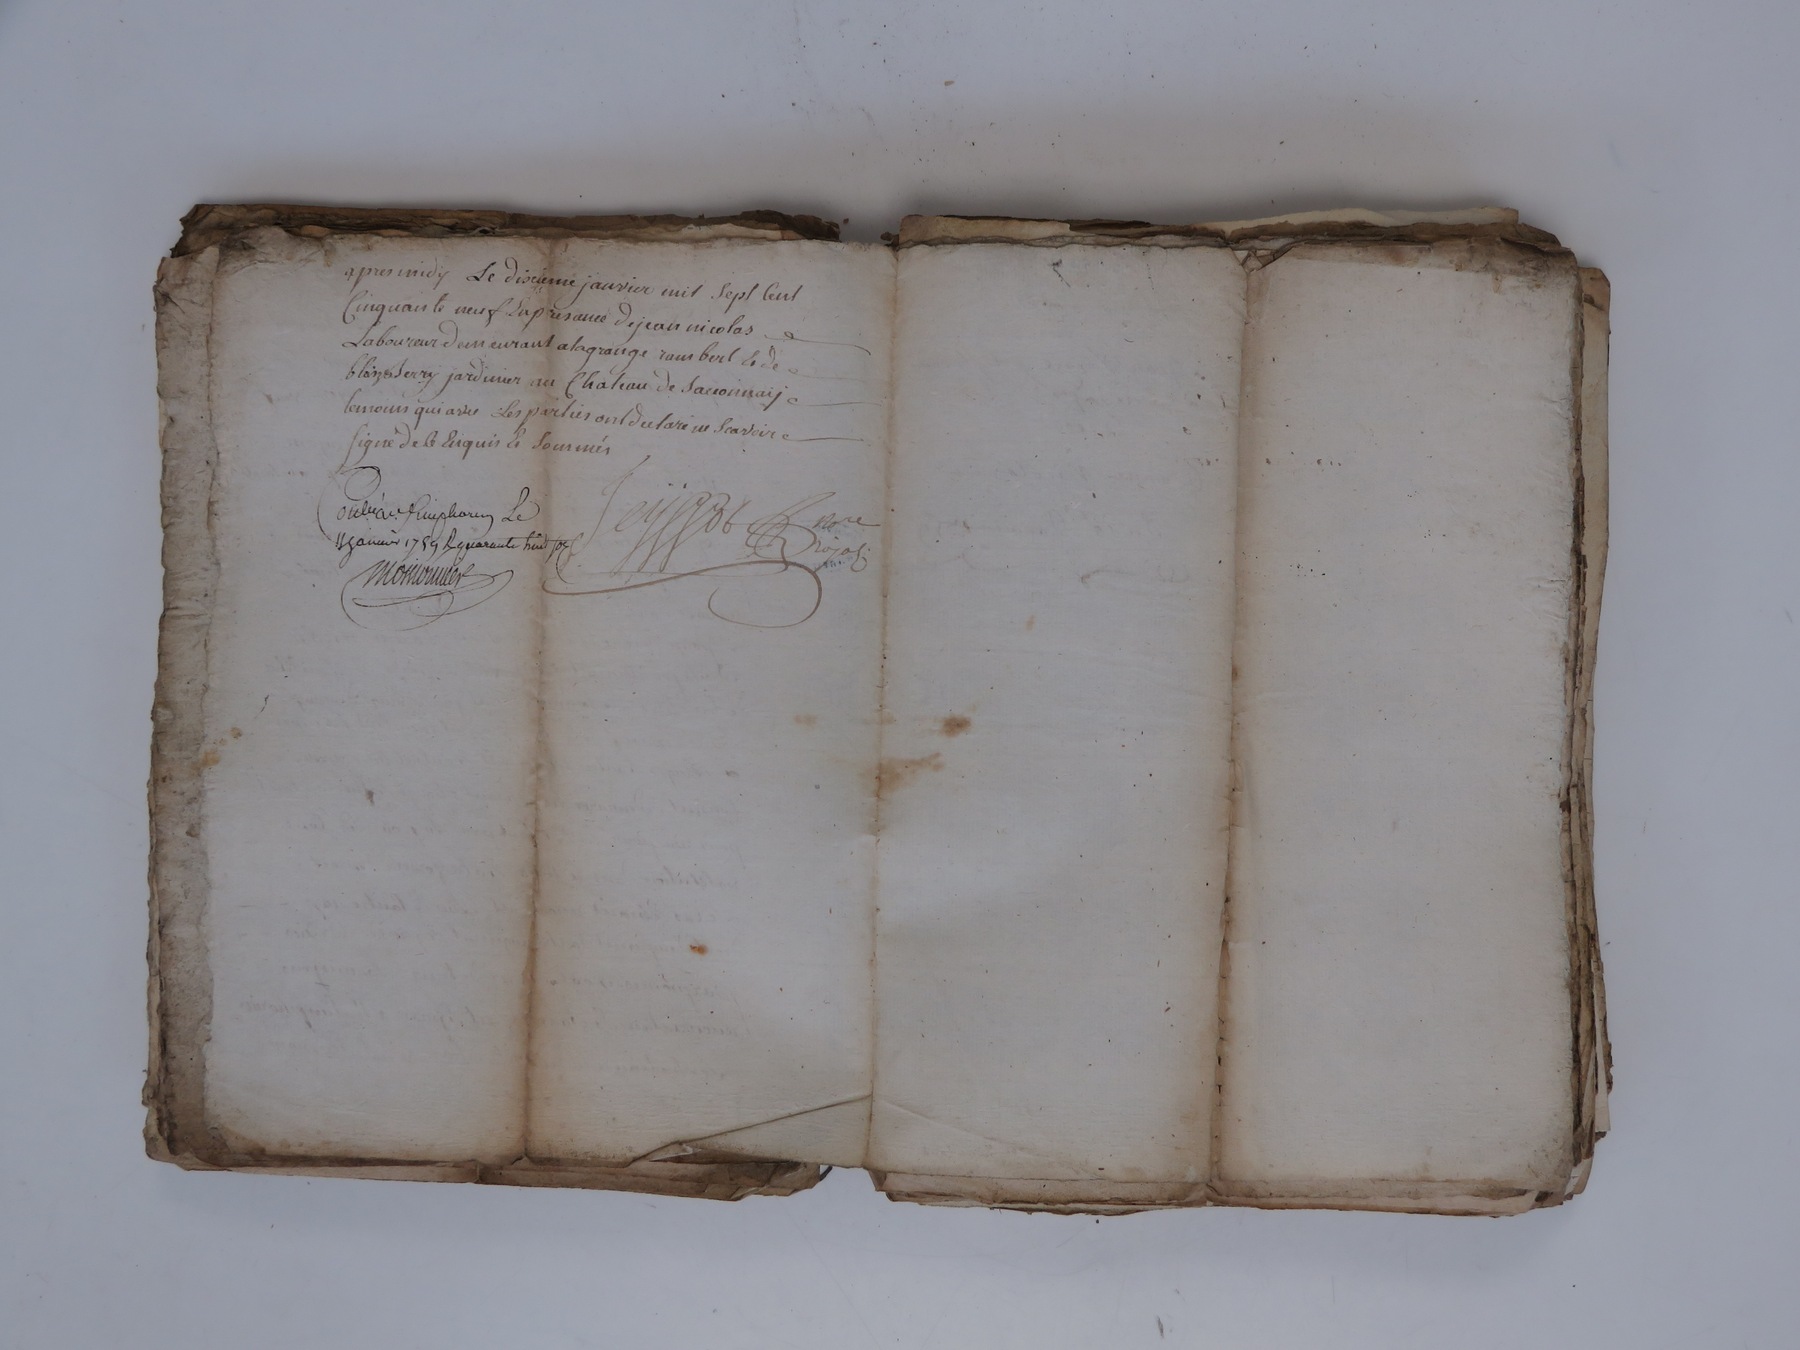 apres midy Le dixieme janvier mil sept Cent
Cinquante neuf En presance de jean nicolas
Laboureur demeurant a lagrange rambert Et de
blaize serry jardinier au Chateau de Sacconnaij
temoins qui avec Les parties ont declare ne scavoir
signé de ce Enquis Et Sommés
Le
11 janvier 1759 R quarante huit sols
notre
royal